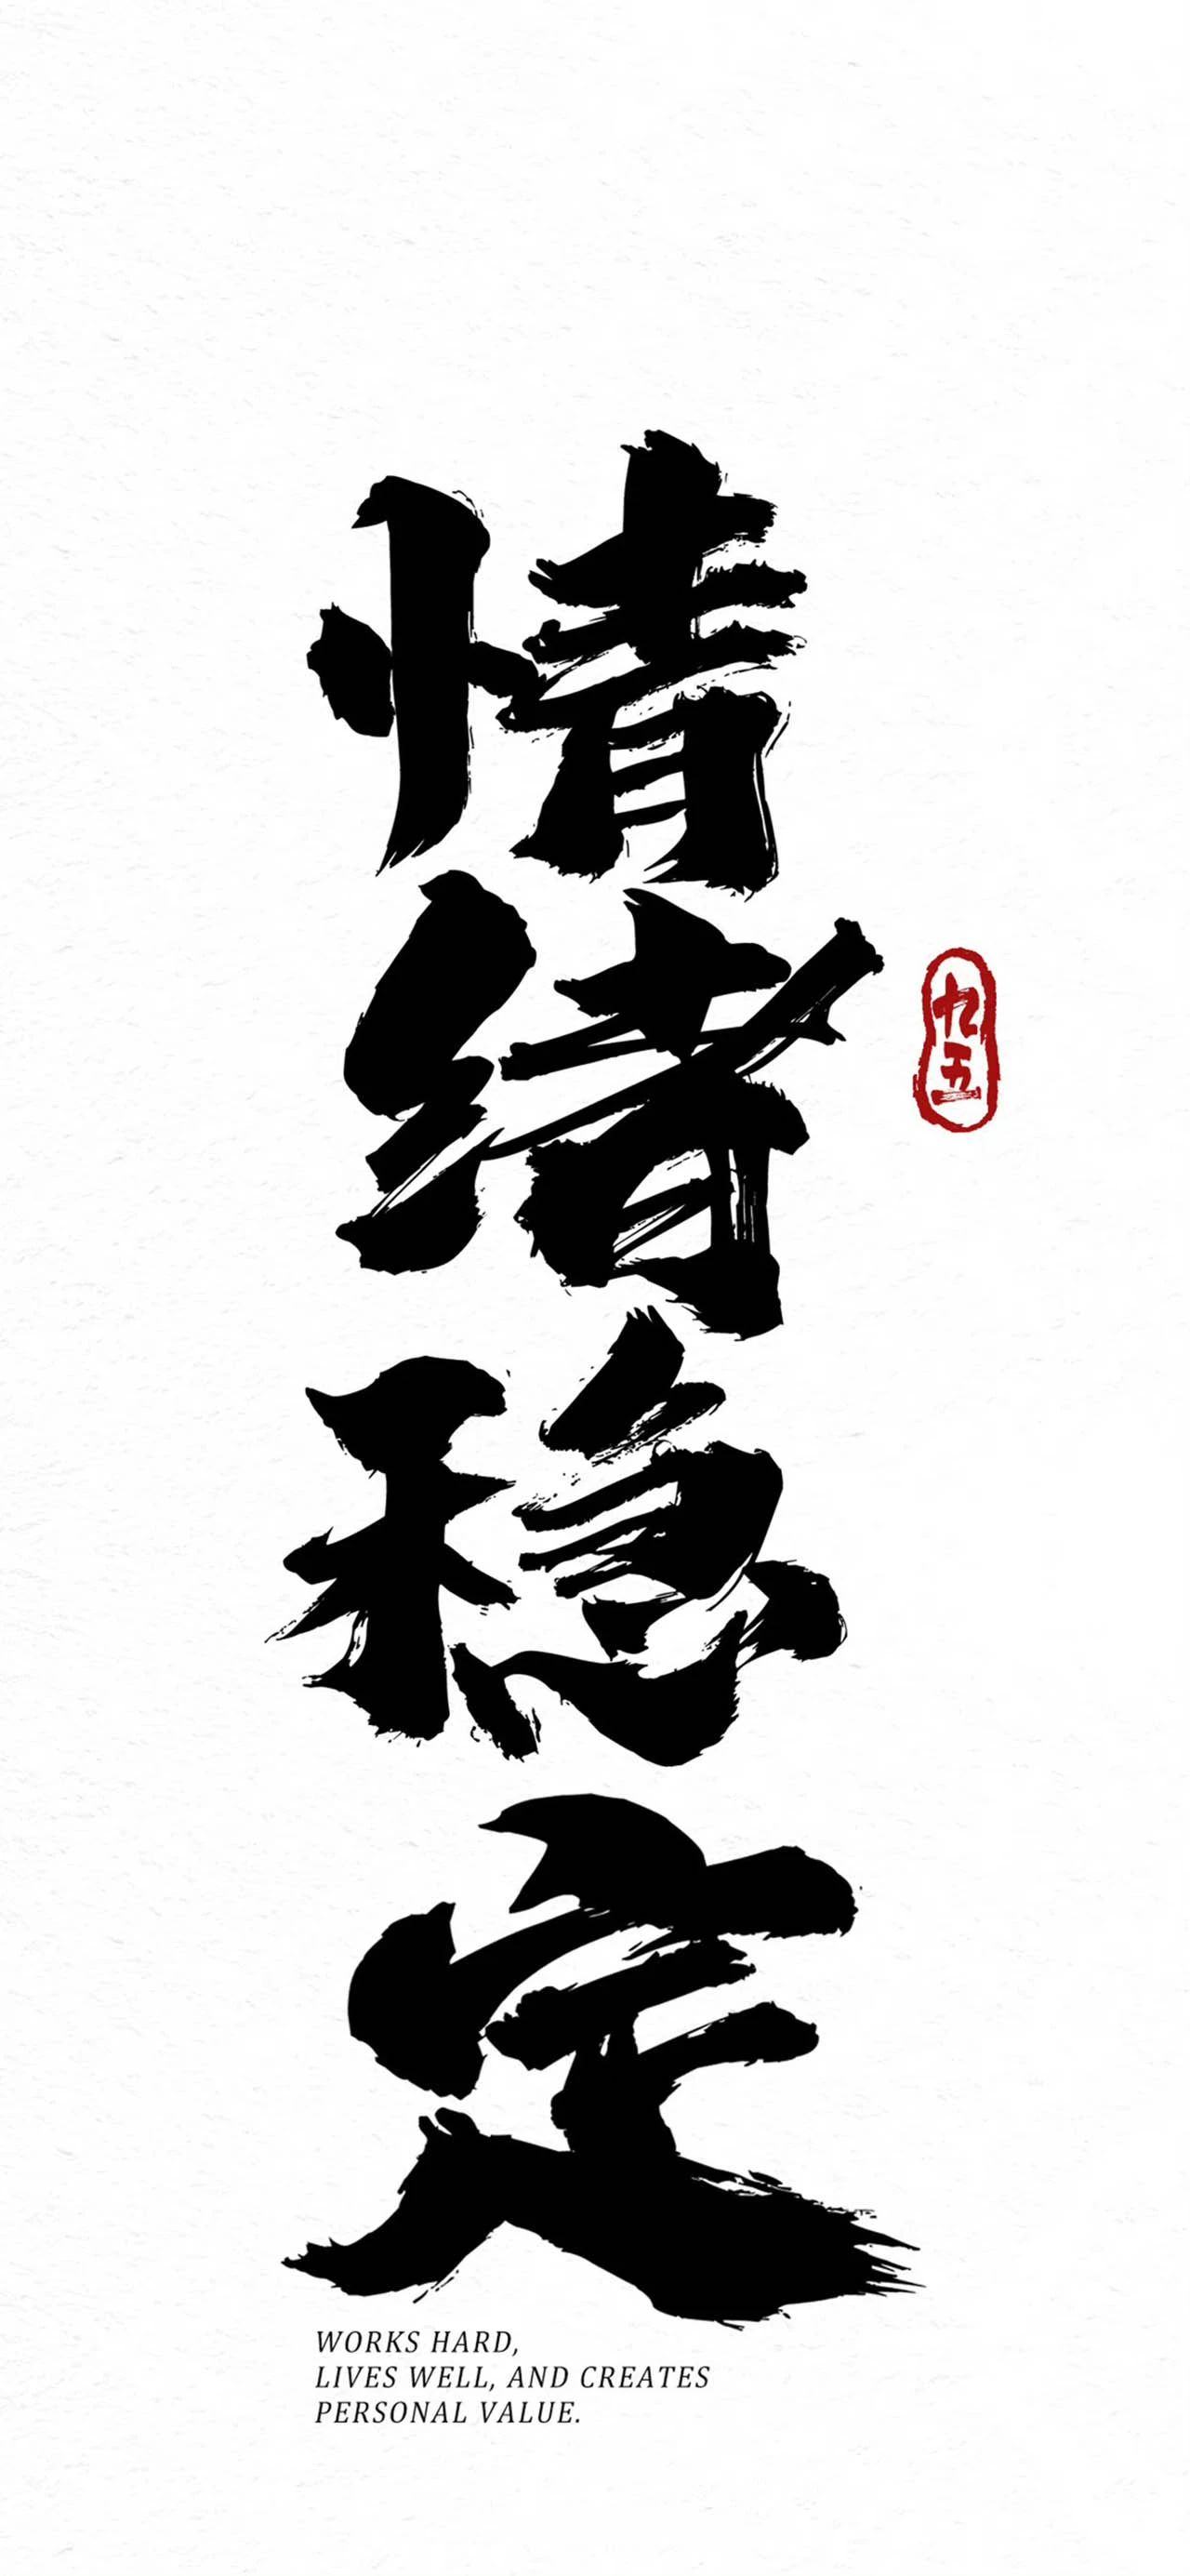 情绪稳定
九五
WORKS HARD,
LIVES WELL, AND CREATES
PERSONAL VALUE.